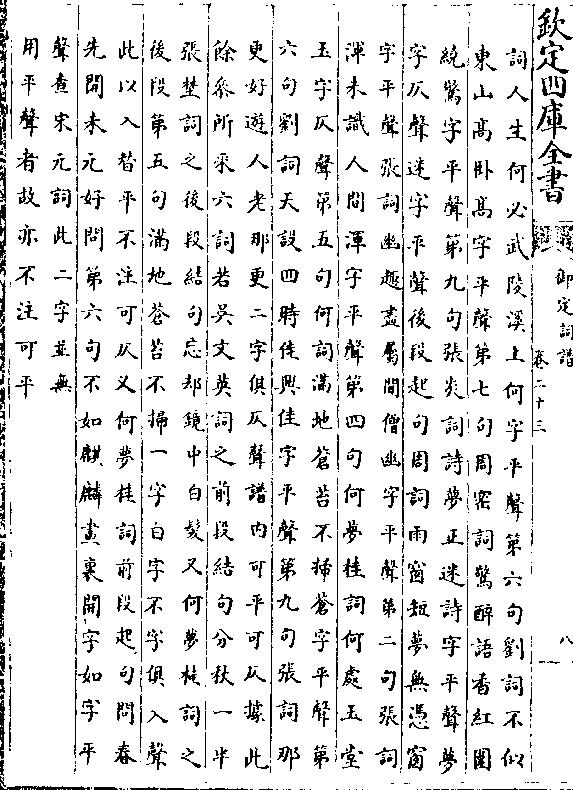 欽定四庫全書
御定詞譜
卷二十三
八
詞人生何必武陵溪上何字平聲第六句劉詞不似
東山高卧高字平聲第七句周密詞驚醉語香紅圍
繞驚字平聲第九句張炎詞詩夢正迷詩字平聲夢
字仄聲迷字平聲後段起句周詞雨窗短夢無憑窗
字平聲張詞幽趣盡屬閒僧幽字平聲第二句張詞
渾未識人間渾字平聲第四句何夢桂詞何處玉堂
玉字仄聲第五句何詞滿地蒼苔不掃蒼字平聲第
六句劉詞天設四時佳興佳字平聲第九句張詞那
更好遊人老那更二字俱仄聲譜内可平可仄據此
餘叅所采六詞若吳文英詞之前段結句分秋一半
張埜詞之後段結句忘却鏡中白髮又何夢桂詞之
後段第五句滿地蒼苔不掃一字白字不字俱入聲
此以入替平不注可仄又何夢桂詞前段起句問春
先問未元好問第六句不如麒麟畫裏開字如字平
聲查宋元詞此二字並無
用平聲者故亦不注可平